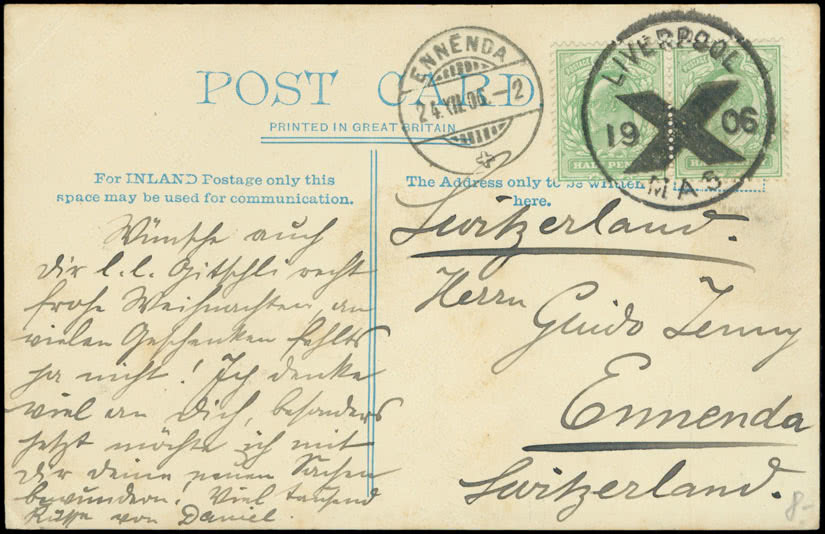 POST CARD
PRINTED IN GREAT BRITAIN
For INLAND Postage only this
space may be used for communication.
The Address only to be written
here.
ENNENDA
24.XII.06.-2
LIVERPOOL
X
19 06
MAS
HALF PEN
HALF
Wünsche auch
dir l. l. Gitschli recht
frohe Weihnachten, an
vielen Geschenken fehlts
ja nicht! Ich denke
viel an Dich, besonders
jetzt möchte ich mit
dir deine neuen Sachen
bewundern! Viel tausend
Küsse von Daniel.
Switzerland.
Herrn
Guido Jenny
Ennenda
Switzerland.
8-